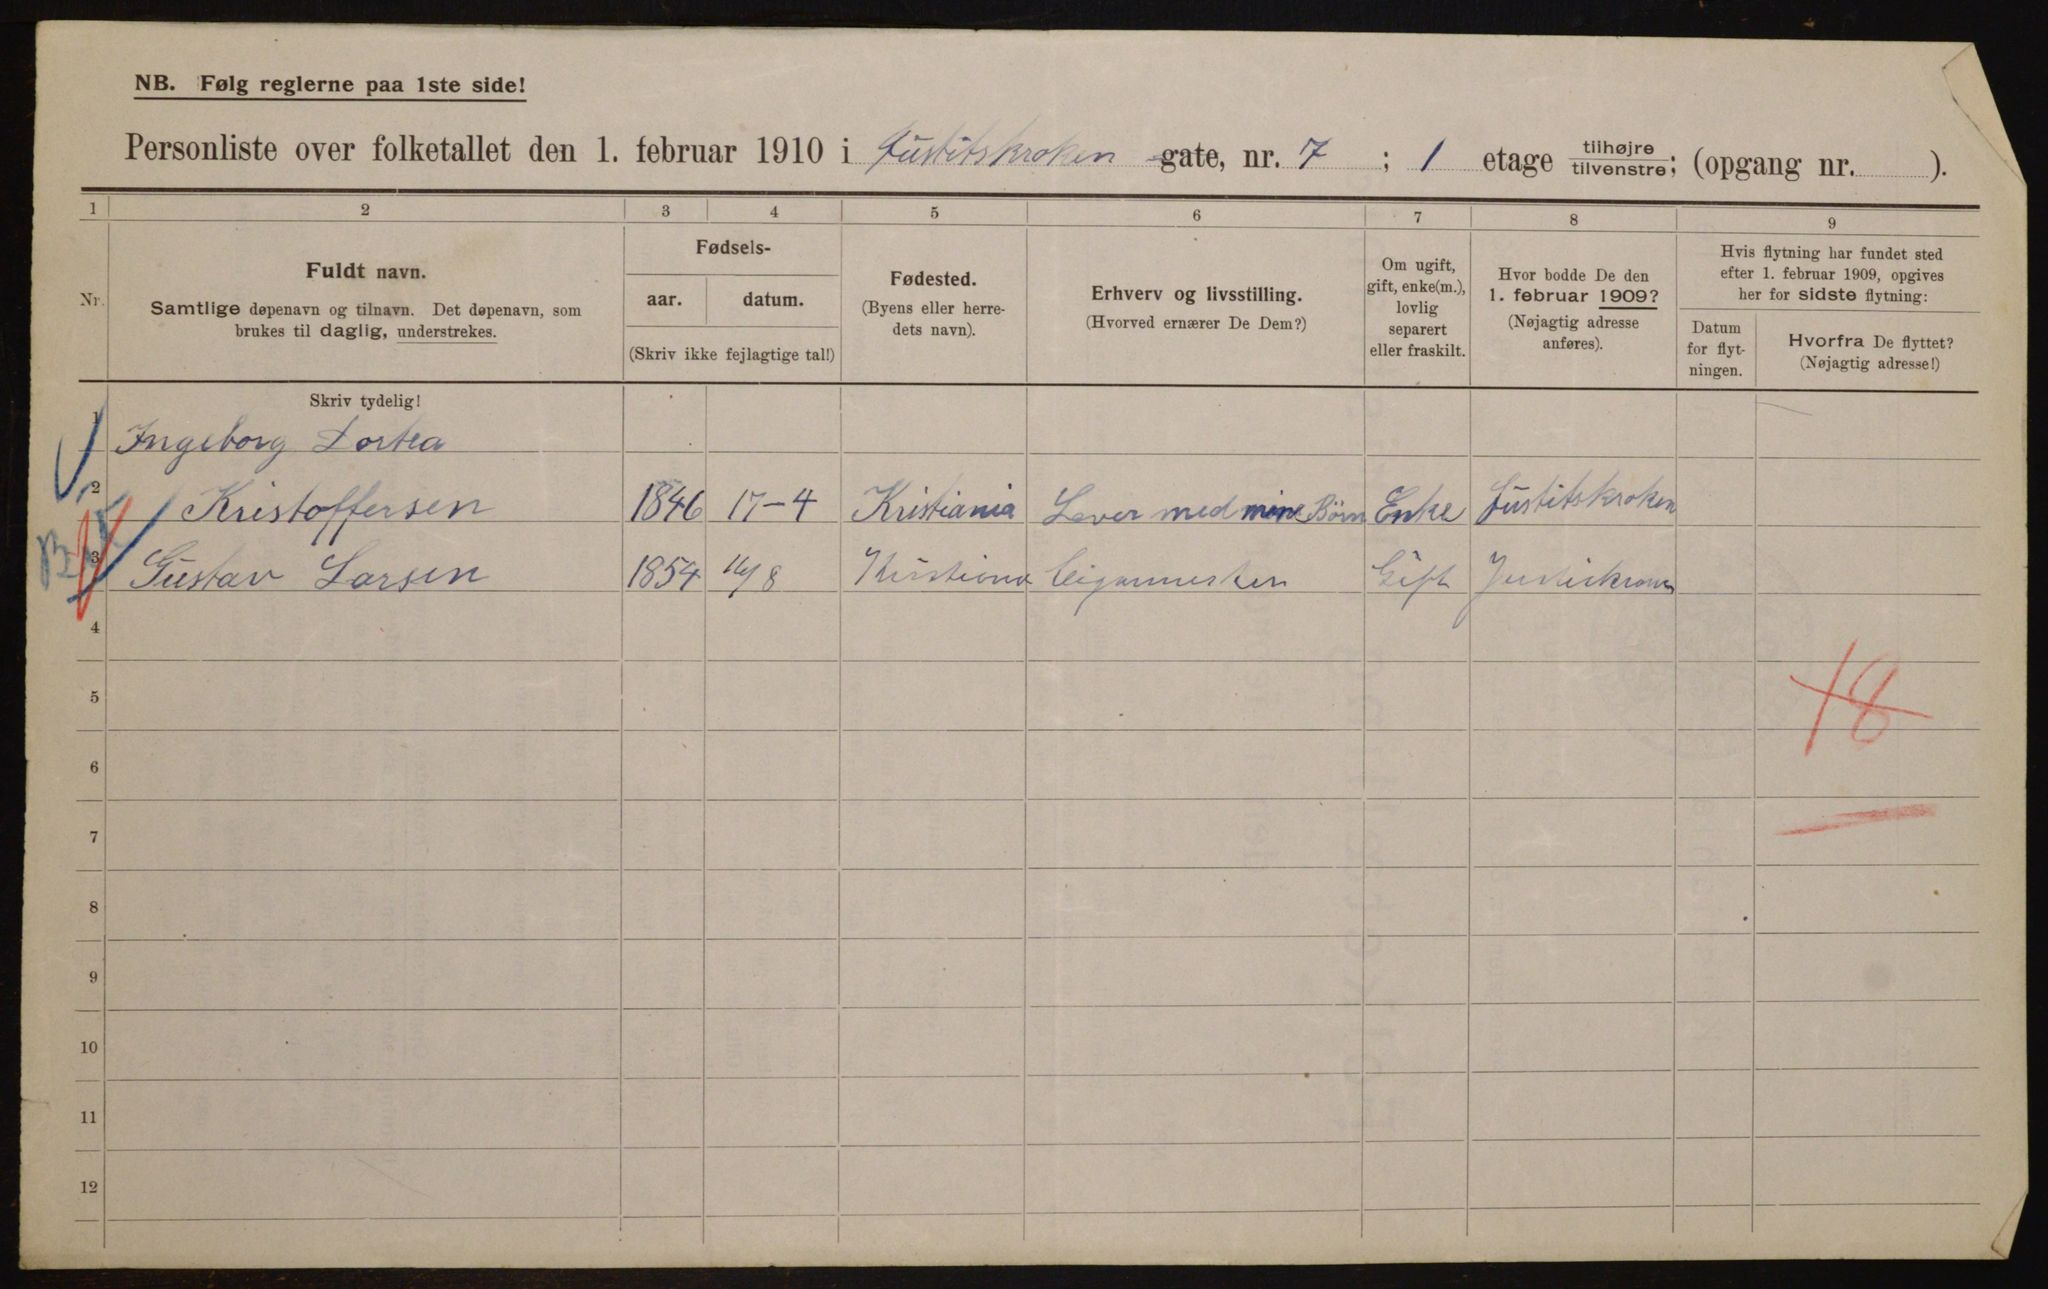 NB. Følg reglerne paa 1ste side!
Personliste over folketallet den 1. februar 1910 i Justitskroken gate, nr. 7 ; 1 etage tilhøjre tilvenstre; (opgang nr. ).
1 2 3 4 5 6 7 8 9
Nr.
Fuldt navn.
Samtlige døpenavn og tilnavn. Det døpenavn, som
brukes til daglig, understrekes.
Fødsels-
aar. datum.
(Skriv ikke fejlagtige tal!)
Fødested.
(Byens eller herre-
dets navn).
Erhverv og livsstilling.
(Hvorved ernærer De Dem?)
Om ugift,
gift, enke(m.),
lovlig
separert
eller fraskilt.
Hvor bodde De den
1. februar 1909?
(Nøjagtig adresse
anføres).
Hvis flytning har fundet sted
efter 1. februar 1909, opgives
her for sidste flytning:
Datum
for flyt-
ningen.
Hvorfra De flyttet?
(Nøjagtig adresse!)
Skriv tydelig!
1 Ingeborg Dortea
2 Kristoffersen 1846 17-4 Kristiania Lever med mine Børn Enke Justitskroken
3 Gustav Larsen 1854 /8 Kristiania Gift
4
5
18
6
7
8
9
10
11
12